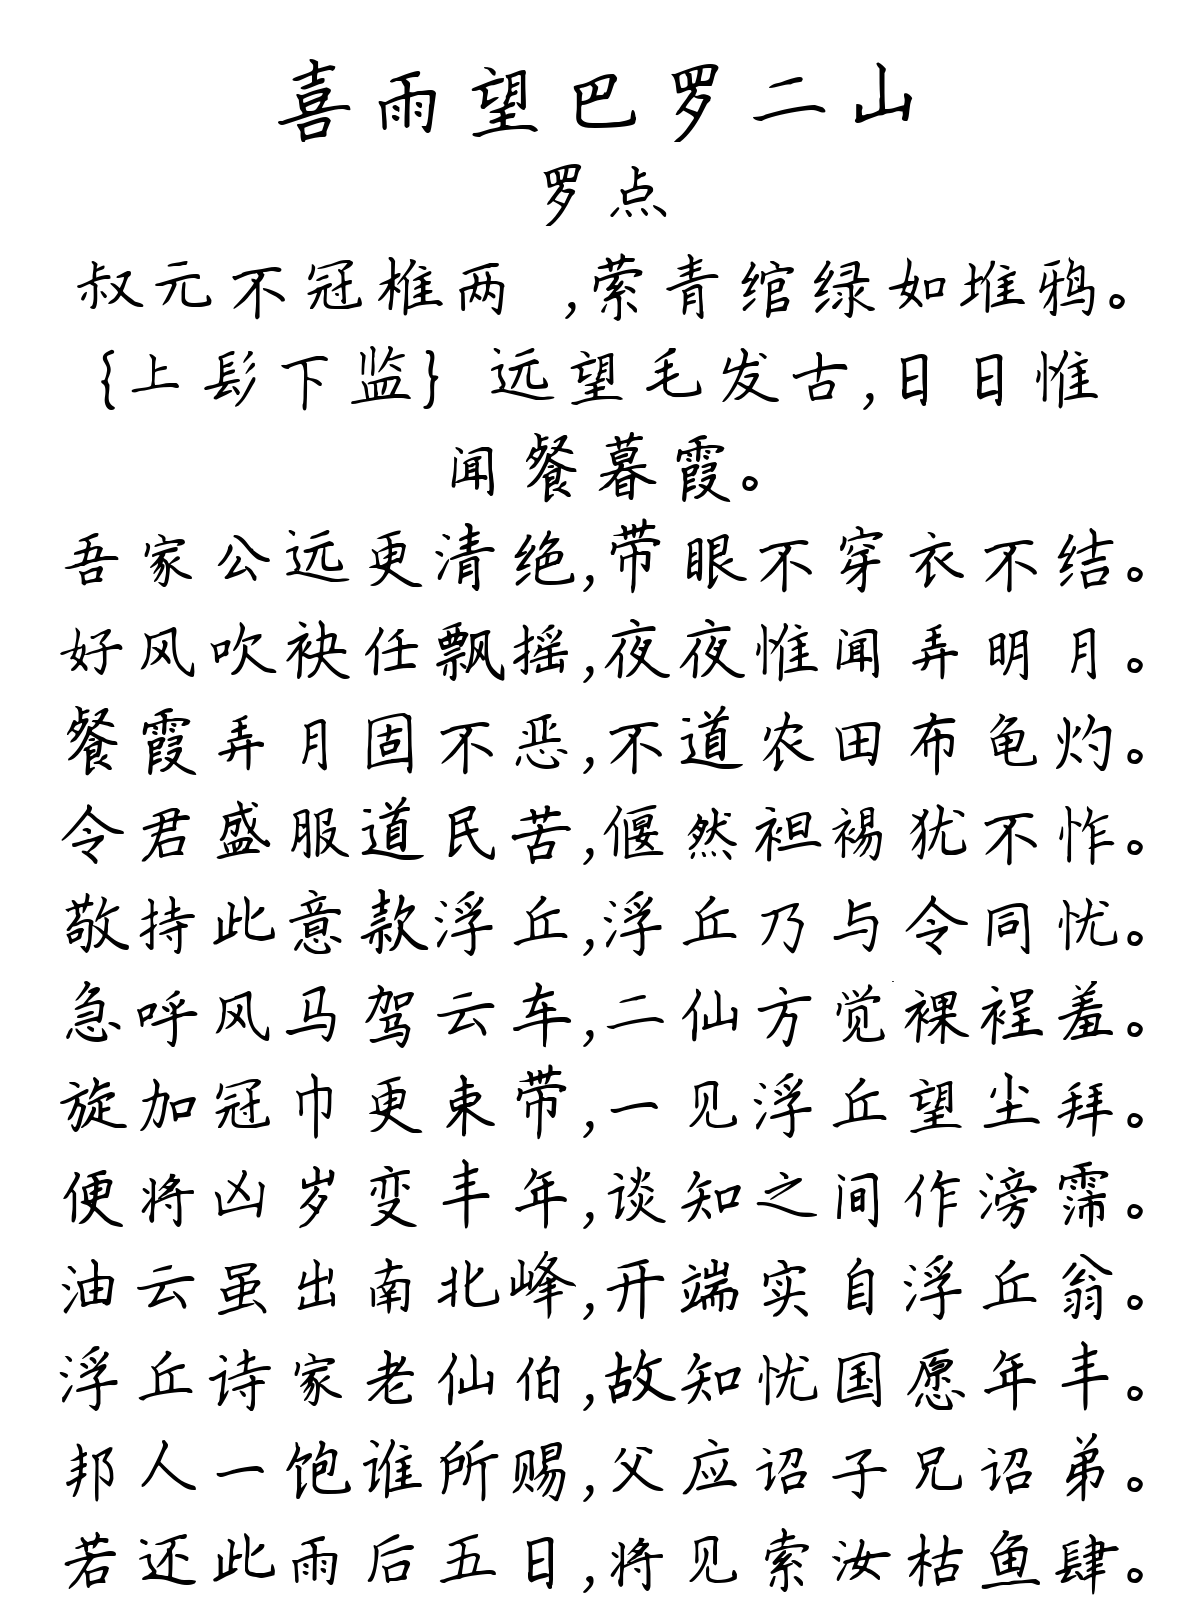 喜雨望巴罗二山
罗点
叔元不冠椎两 ,萦青绾绿如堆鸦。
{上髟下监}远望毛发古,日日惟
闻餐暮霞。
吾家公远更清绝,带眼不穿衣不结。
好风吹袂任飘摇,夜夜惟闻弄明月。
餐霞弄月固不恶,不道农田布龟灼。
令君盛服道民苦,偃然袒裼犹不怍。
敬持此意款浮丘,浮丘乃与令同忧。
急呼风马驾云车,二仙方觉裸裎羞。
旋加冠巾更束带,一见浮丘望尘拜。
便将凶岁变丰年,谈知之间作滂霈。
油云虽出南北峰,开端实自浮丘翁。
浮丘诗家老仙伯,故知忧国愿年丰。
邦人一饱谁所赐,父应诏子兄诏弟。
若还此雨后五日,将见索汝枯鱼肆。